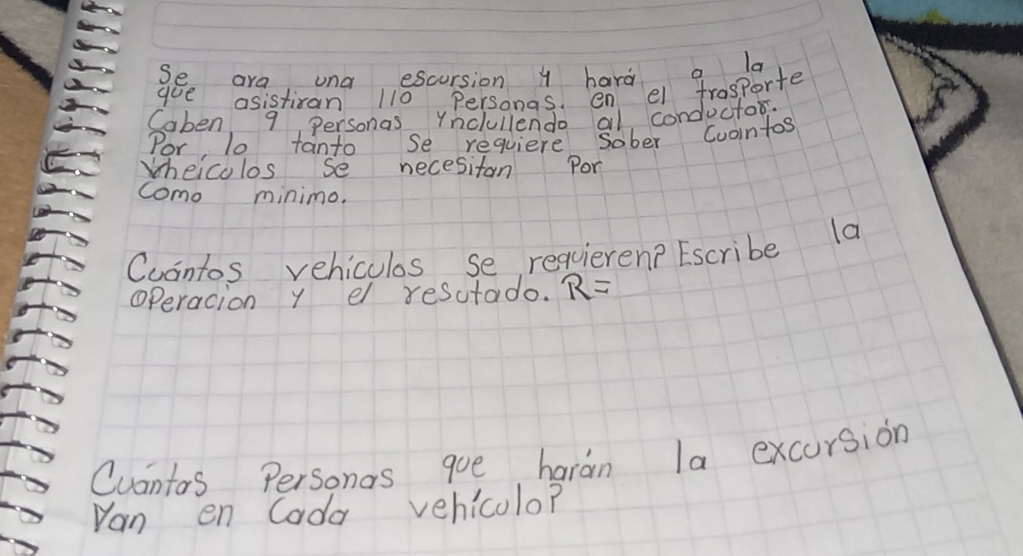 Se ara una escursion y hará a la
que asistiran 110 Personas. en el trasPorte
Caben 9 Personas Ynclullendo al conductor.
Por lo tanto Se requiere Sober Cuantos
Vheiculos Se necesitan Por
Como minimo.
Cuántos vehiculos se requieren? Escribe la
OPeración y el resutado. R=
Cuántas Personas que harán la excursión
Van en Cada vehículo?